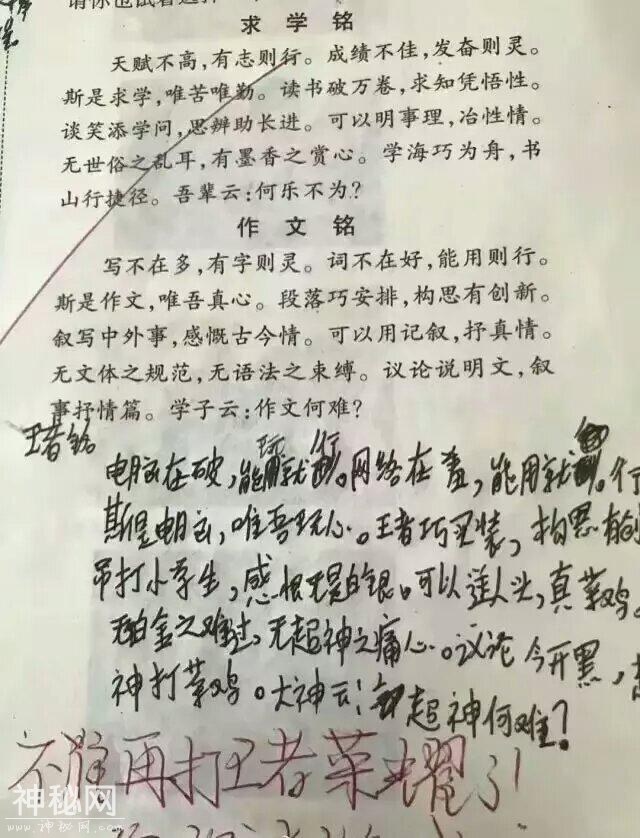 请你也试着选择
求学铭
天赋不高,有志则行。成绩不佳,发奋则灵。
斯是求学,唯苦唯勤。读书破万卷,求知凭悟性。
谈笑添学问,思辨助长进。可以明事理,冶性情。
无世俗之乱耳,有墨香之赏心。学海巧为舟,书
山行捷径。吾辈云:何乐不为?
作文铭
写不在多,有字则灵。词不在好,能用则行。
斯是作文,唯吾真心。段落巧安排,构思有创新。
叙写中外事,感慨古今情。可以用记叙,抒真情。
无文体之规范,无语法之束缚。议论说明文,叙
事抒情篇。学子云:作文何难?
王者铭
电脑在破,能玩就行。网络在差,能用就行
斯是电玩,唯吾玩心。王者巧买装,构思有
吊打小学生,感恨是白银。可以送人头,真菜鸡。
无铂金之难过,无超神之痛心。议论今开黑,
神打菜鸡。大神云:超神何难?
不准再打王者荣耀了!
神秘网